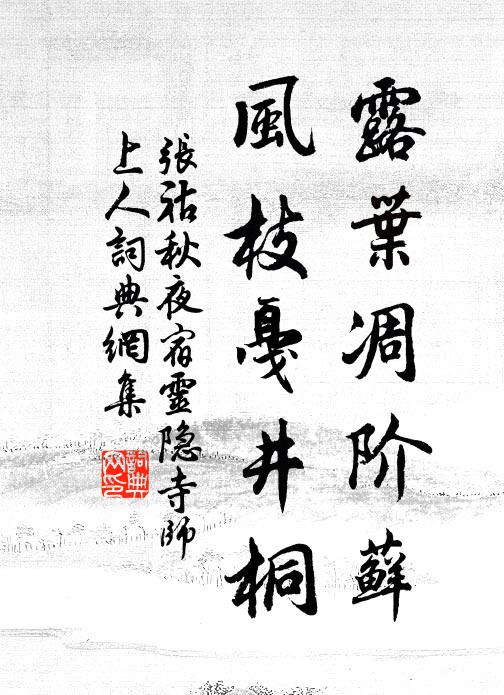 露葉凋阶蘚
風枝戞井桐
張祜秋夜宿靈隐寺師
上人詞典網集
詞典网印